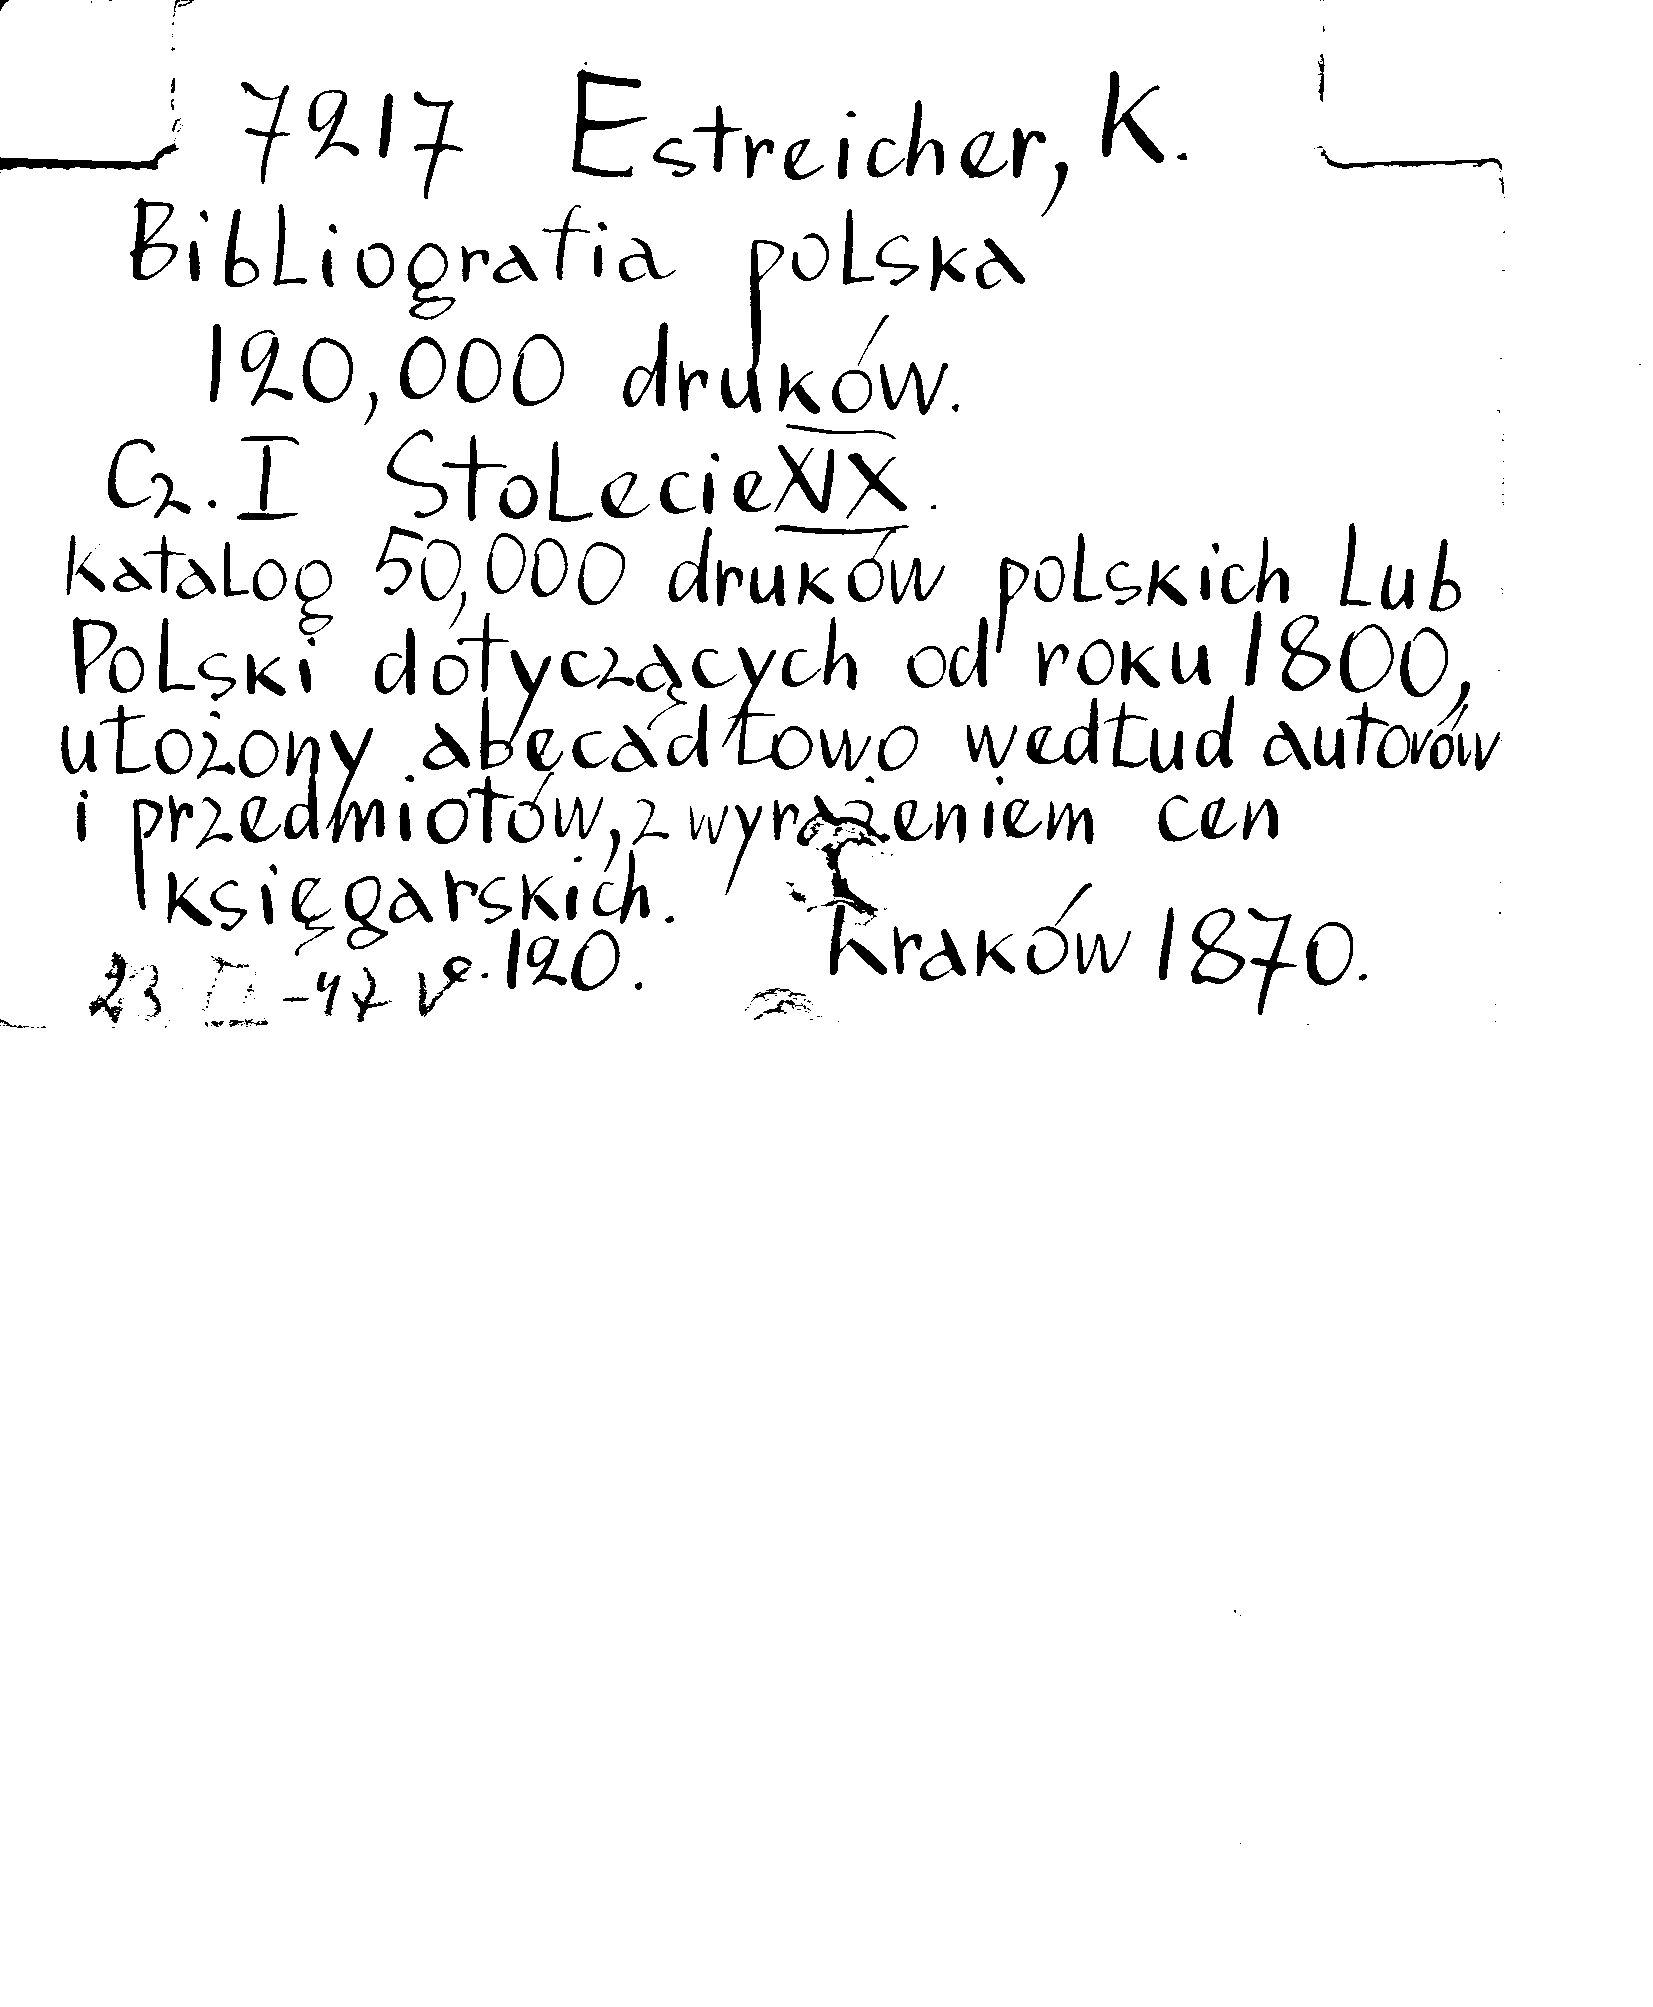 7217 Estreicher, K.
Bibliografia polska
120,000 druków.
Cz. I Stolecie XIX.
Katalog 50,000 druków polskich lub
Polski dotyczących od roku 1800,
ułożony abecadłowo wedłud autorów
i przedmiotów, z wyrażeniem cen
księgarskich.
120. Kraków 1870.